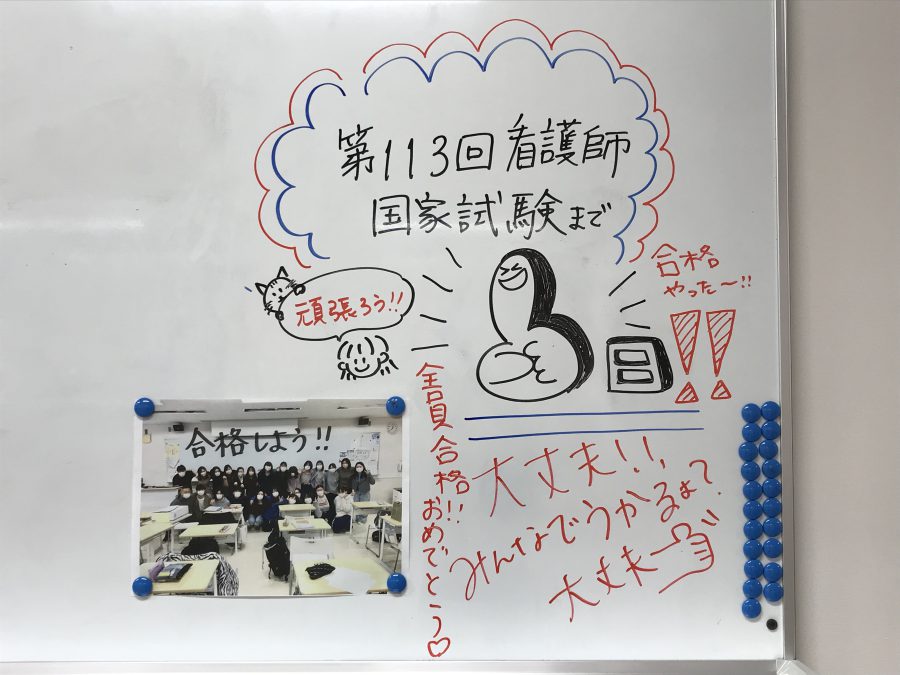 第113回看護師
国家試験まで
頑張ろう!!
日
合格
やった〜!!
!!
全員合格!!おめでとう♡
大丈夫!!
みんなでうかるよ
大丈夫
合格しよう!!